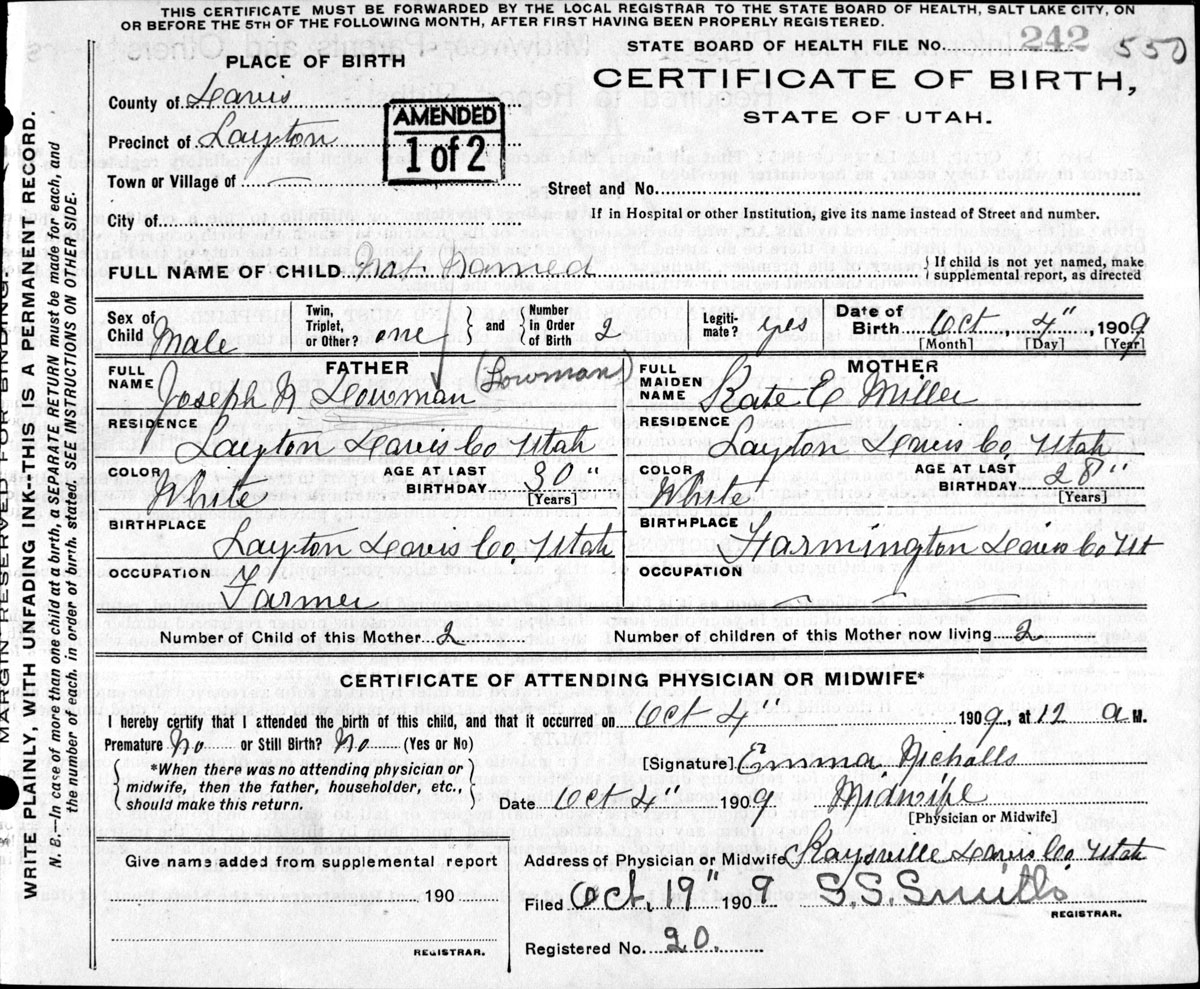 THIS CERTIFICATE MUST BE FORWARDED BY THE LOCAL REGISTRAR TO THE STATE BOARD OF HEALTH, SALT LAKE CITY, ON
OR BEFORE THE 5TH OF THE FOLLOWING MONTH, AFTER FIRST HAVING BEEN PROPERLY REGISTERED.
STATE BOARD OF HEALTH FILE No. 242 550
PLACE OF BIRTH
CERTIFICATE OF BIRTH,
STATE OF UTAH.
County of Davis
Precinct of Layton
AMENDED
1 of 2
Town or Village of
Street and No.
City of
If in Hospital or other Institution, give its name instead of Street and number.
FULL NAME OF CHILD Not Named
{ If child is not yet named, make
supplemental report, as directed
Sex of Child Male
Twin, Triplet, or Other? one } and { Number in Order of Birth 2
Legiti-mate? yes
Date of Birth Oct 4" 1909
[Month] [Day] [Year]
FATHER
FULL NAME Joseph N Dowman (Lowman)
RESIDENCE
Layton Davis Co, Utah
COLOR White
AGE AT LAST BIRTHDAY 30"
[Years]
BIRTHPLACE
Layton Davis Co, Utah
OCCUPATION
Farmer
MOTHER
FULL MAIDEN NAME Kate E Miller
RESIDENCE
Layton Davis Co, Utah
COLOR White
AGE AT LAST BIRTHDAY 28"
[Years]
BIRTHPLACE
Farmington Davis Co Ut
OCCUPATION
Number of Child of this Mother 2
Number of children of this Mother now living 2
CERTIFICATE OF ATTENDING PHYSICIAN OR MIDWIFE*
I hereby certify that I attended the birth of this child, and that it occurred on Oct 4" 1909, at 12 a M.
Premature No or Still Birth? No (Yes or No)
{ *When there was no attending physician or
midwife, then the father, householder, etc.,
should make this return. }
[Signature] Emma Nicholls
Date Oct 4" 1909 Midwife
[Physician or Midwife]
Give name added from supplemental report
190
REGISTRAR.
Address of Physician or Midwife Kaysville Davis Co, Utah
Filed Oct, 19" 1909 S.S. Smith
REGISTRAR.
Registered No. 20.
MARGIN RESERVED FOR BINDING
WRITE PLAINLY, WITH UNFADING INK-THIS IS A PERMANENT RECORD.
N. B.—In case of more than one child at a birth, a SEPARATE RETURN must be made for each, and
the number of each, in order of birth, stated. SEE INSTRUCTIONS ON OTHER SIDE.